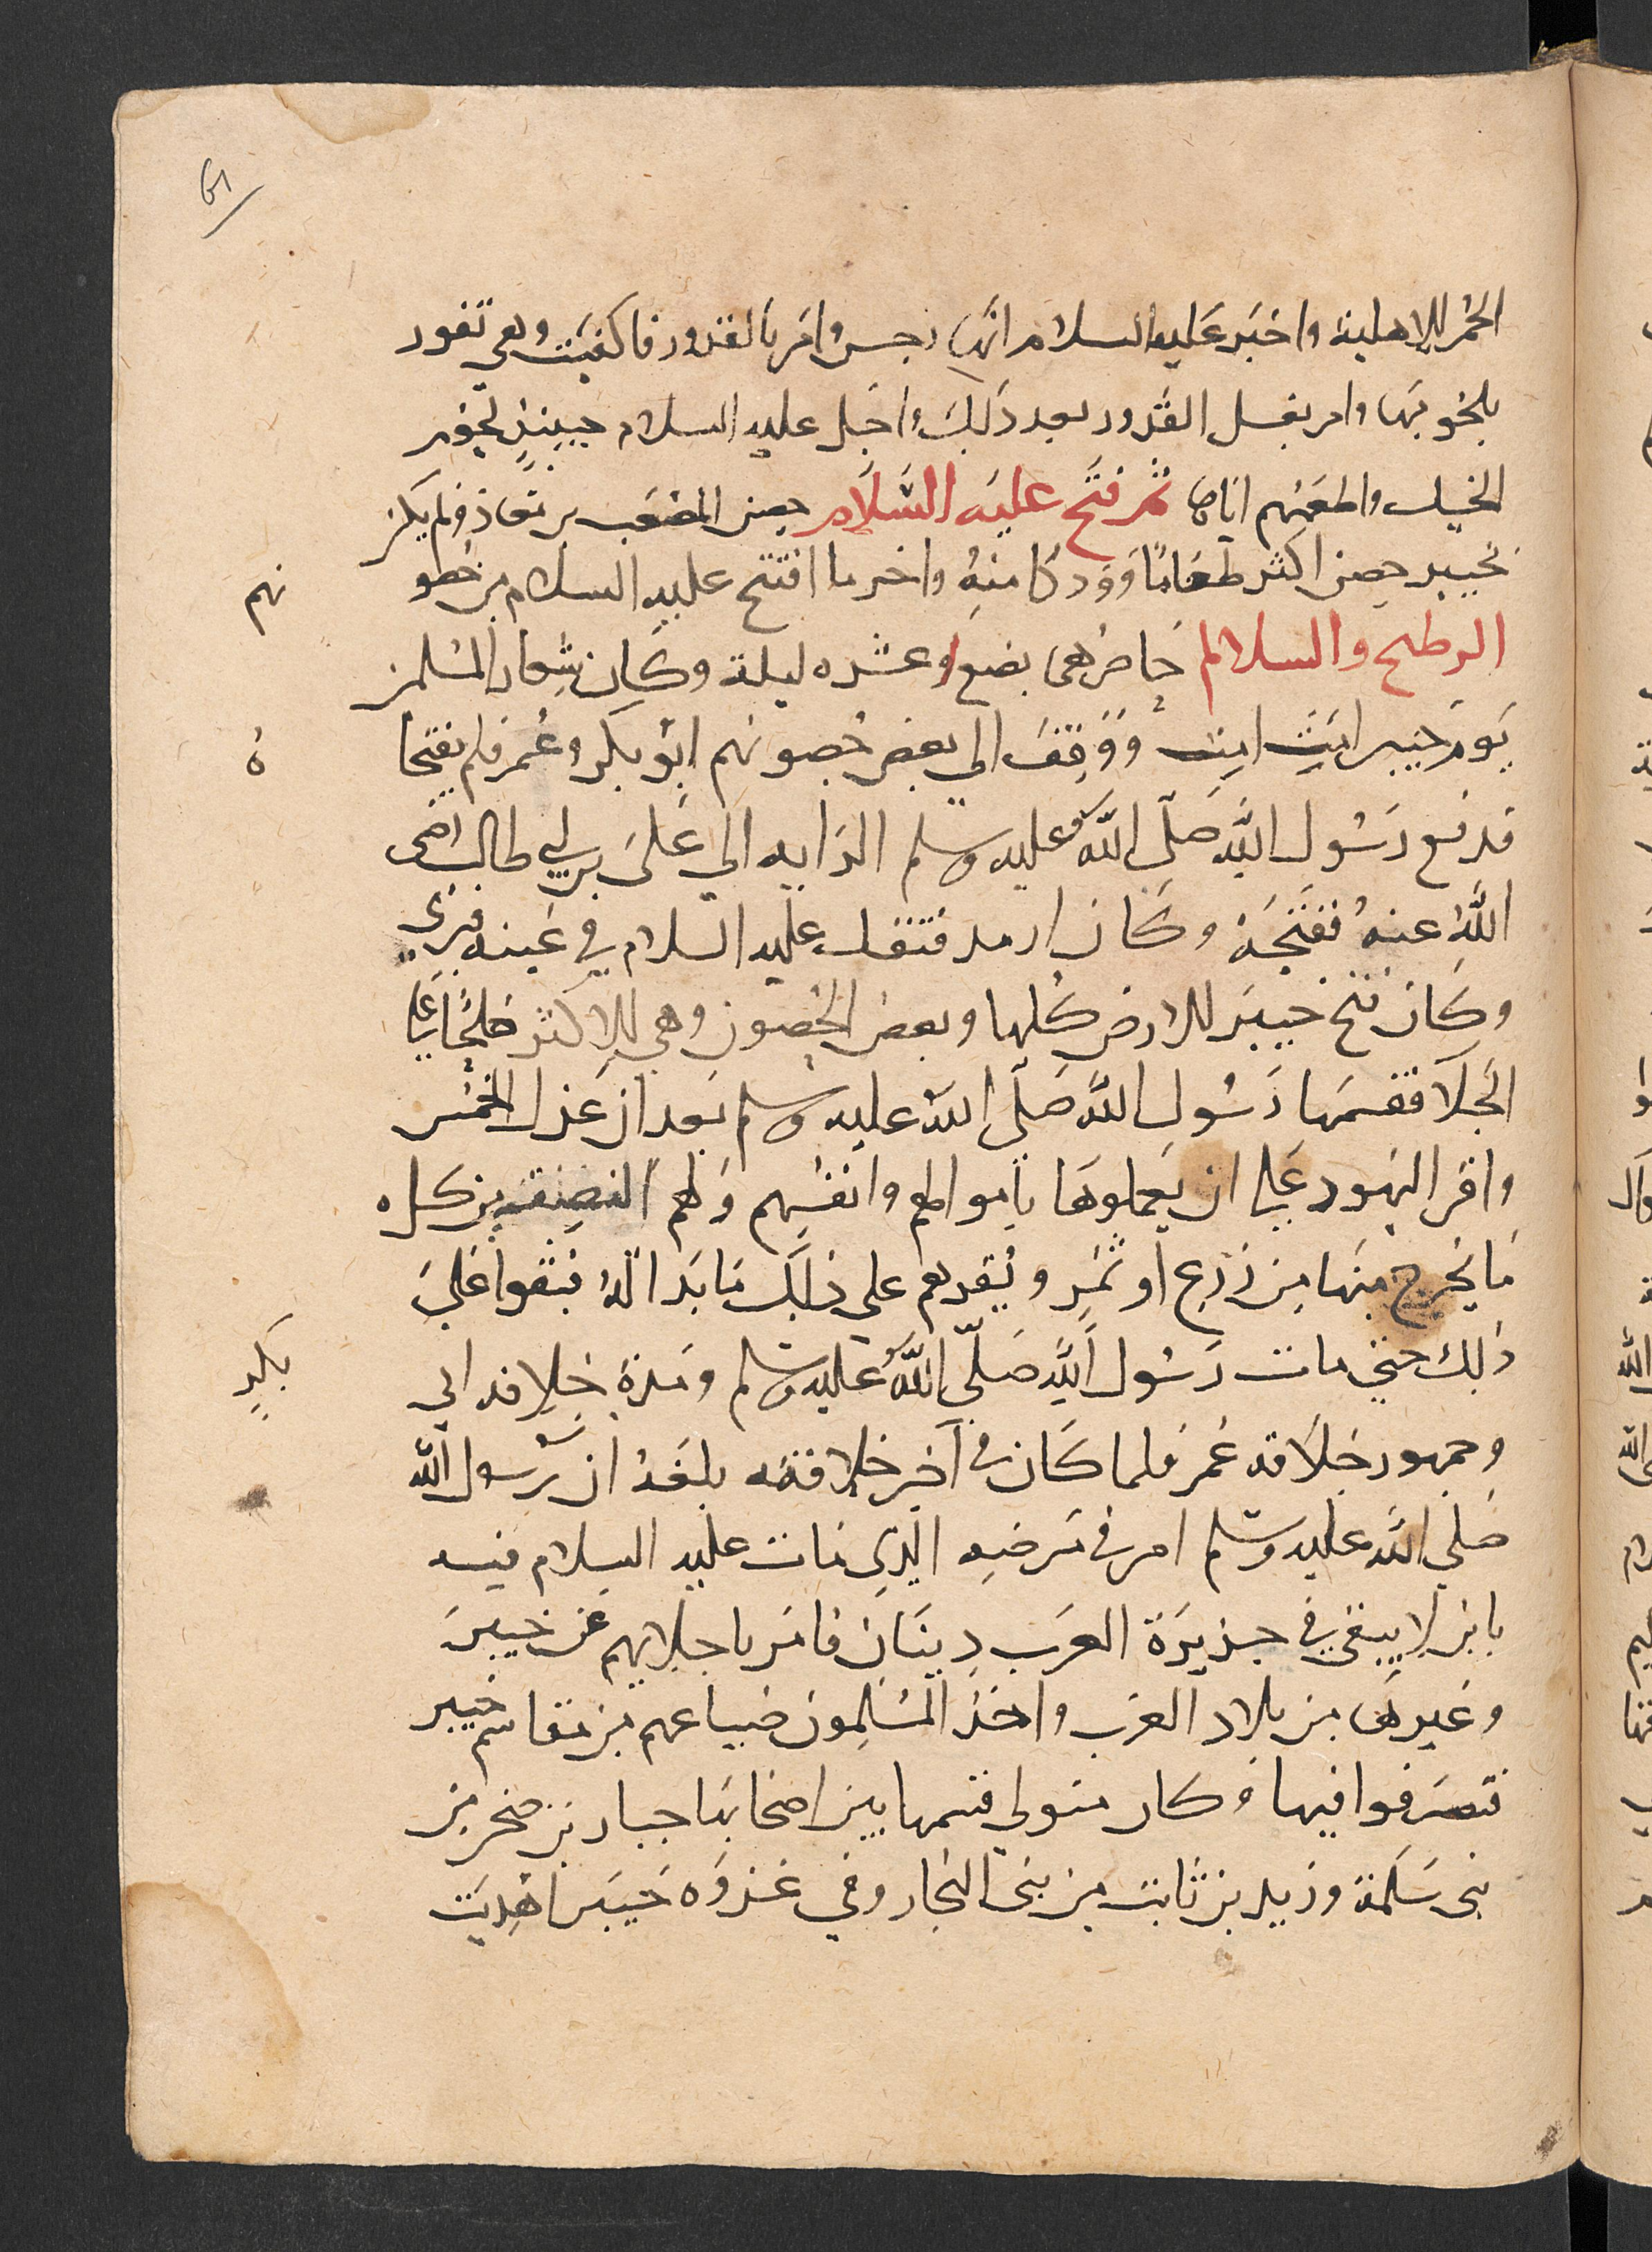 61
الحمر الاهلية واخبر عليه السلام انها رجس وامر بالقدور فاكفيت وهي تفور
بلحومها وامر بغسل القدور بعد ذلك واحل عليه السلام حينيذ لحوم
الخيل واطعمهم اياها ثم فتح عليه السلام حصن الصعب بن معاذ ولم يكن
بخيبر حصن اكثر طعاما وودكا منه واخر ما افتتح عليه السلام من حصو
نهم
الوطيح والسلالم حاصرهم بضع وعشره ليلة وكان شعار المسلمين
يوم خيبر امت امت ووقف الي بعض حصونهم ابو بكر وعمر فلم يفتحا
ه
فدفع رسول الله صلى الله عليه وسلم الرايه الي على بن ابي طالب رضى
الله عنه ففتحه وكان ارمد فتفل عليه السلام في عينه فبرى
وكان فتح خيبر الارض كلها وبعض الحصون وهي الاكثر صلحا على
الجلا فقسمها رسول الله صلى الله عليه وسلم بعد ان عزل الخمس
واقر اليهود علي ان يعملوها باموالهم وانفسهم ولهم النصف من كل
ما يخرج منها من زرع او ثمر ويقرهم على ذلك ما بدا له فبقوا على
ذلك حتى مات رسول الله صلى الله عليه وسلم ومدة خلافه ابي
بكر
وجمهور خلافه عمر فلما كان في آخر خلافته بلغه ان رسول الله
صلي الله عليه وسلم امر في مرضه الذي مات عليه السلام فيه
بان لا يبقى في جزيرة العرب دينان فامر باجلايهم عن خيبر
وغيرها من بلاد العرب واخذ المسلمون ضياعهم من مقاسم خيبر
فتصرفوا فيها وكان متولي قسمها بين اصحابها جبار بن صخر من
بنى سلمة وزيد بن ثابت من بنى النجار وفي غزوه خيبر اهديت